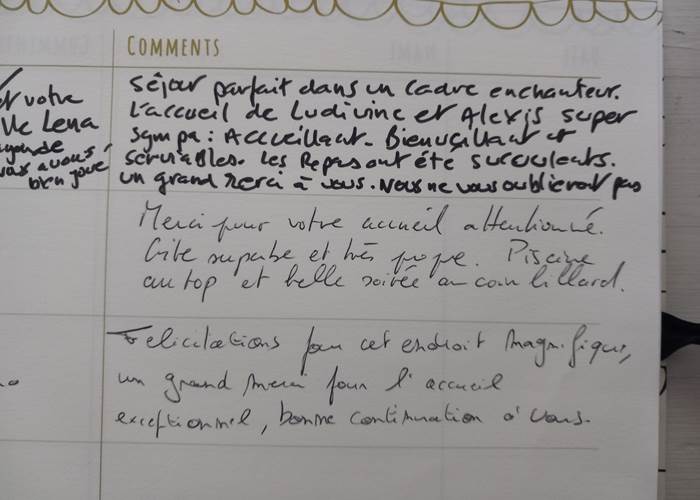 COMMENTS
Séjour parfait dans un cadre enchanteur.
L'accueil de Ludivine et Alexis super
sympa : Accueillant. Bienveillant et
serviables. Les Repas ont été succulents.
un grand merci à vous. Nous ne vous oublieront pas
votre
Lena
bien jouer
Merci pour votre accueil attentionné.
Gîte superbe et très propre. Piscine
au top et belle soirée au coin billard.
Felicitations pour cet endroit magnifique,
un grand merci pour l'accueil
exceptionnel, bonne continuation à vous.